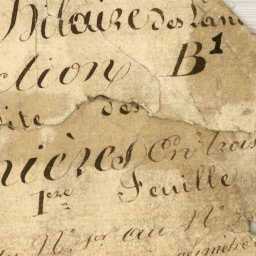 Hilaire des Lan
ction B1
dite des
nières En trois
1ere Feuille
N° 1er au N°